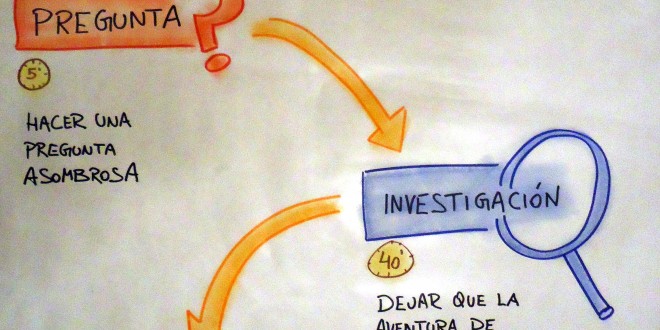 PREGUNTA ?
5'
HACER UNA
PREGUNTA
ASOMBROSA
INVESTIGACIÓN
40'
DEJAR QUE LA
AVENTURA DE